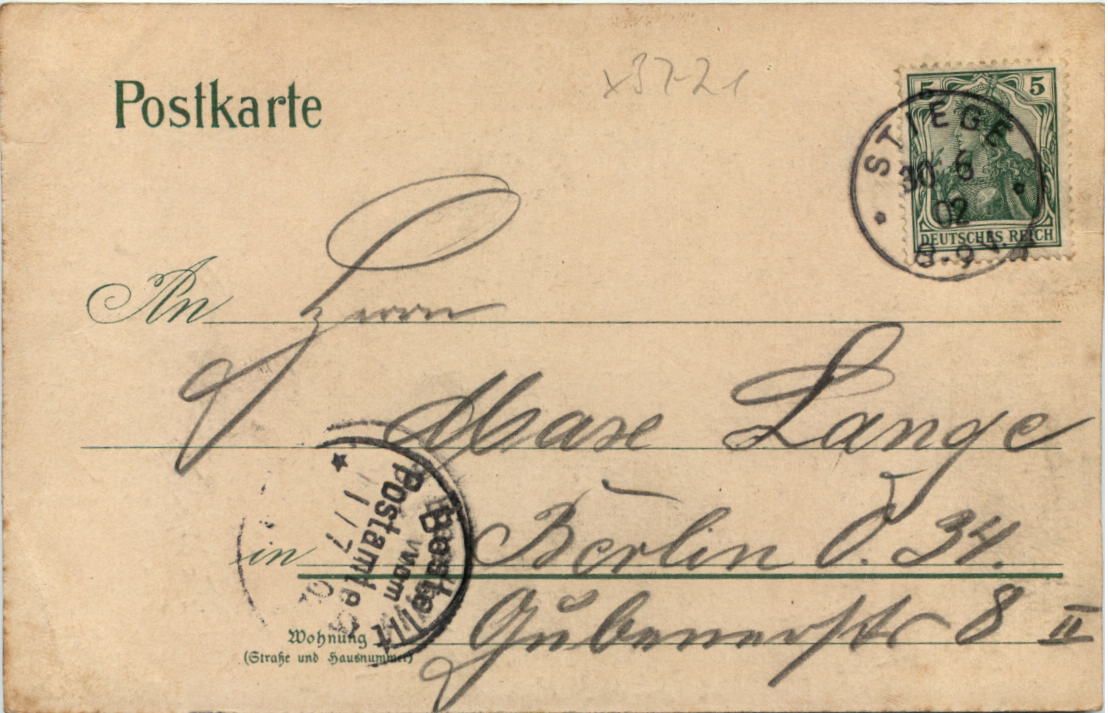 Postkarte
x37-21
5 5
STIEGE
30 6
02
8-9V
DEUTSCHES REICH
An Herrn
Max Lange
in Berlin O. 34.
Gubenerstr 8 II
Bestellt
vom
Postamte
1/7
02
Wohnung
(Straße und Hausnummer)